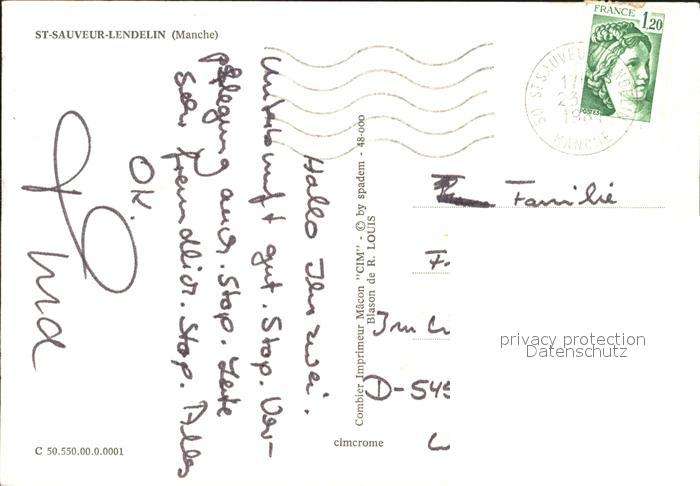 ST-SAUVEUR-LENDELIN (Manche)
FRANCE 1,20
POSTES
ST-SAUVEUR-LENDELIN
50 MANCHE
Hallo Ihr zwei.
Unterkunft gut. Stop. Ver-
pflegung auch. Stop. Leute
sehr freundlich. Stop. Alles
OK.
und
Combier Imprimeur Mâcon "CIM" - © by spadem - 48-000
Blason de R. LOUIS
Familie
F.
Im
D-545
privacy protection
Datenschutz
cimcrome
C 50.550.00.0.0001